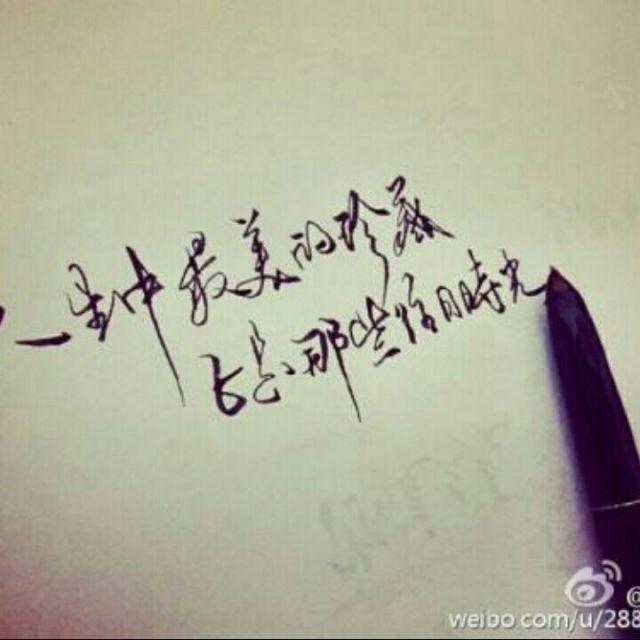 一生中最美的珍藏
正是那些往日時光
@
weibo.com/u/288